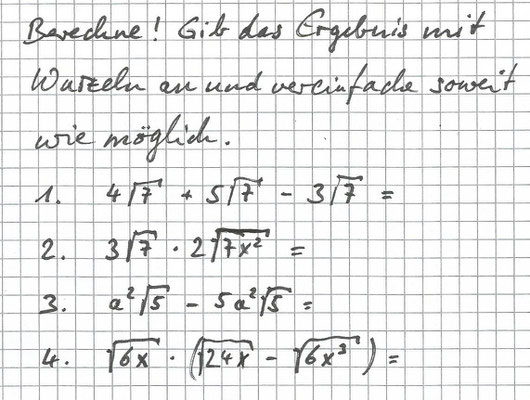 Berechne! Gib das Ergebnis mit
Wurzeln an und vereinfache soweit
wie möglich.
1. 4√7 + 5√7 - 3√7 =
2. 3√7 · 2√(7x²) =
3. a²√5 - 5a²√5 =
4. √(6x) · (√(24x) - √(6x³)) =